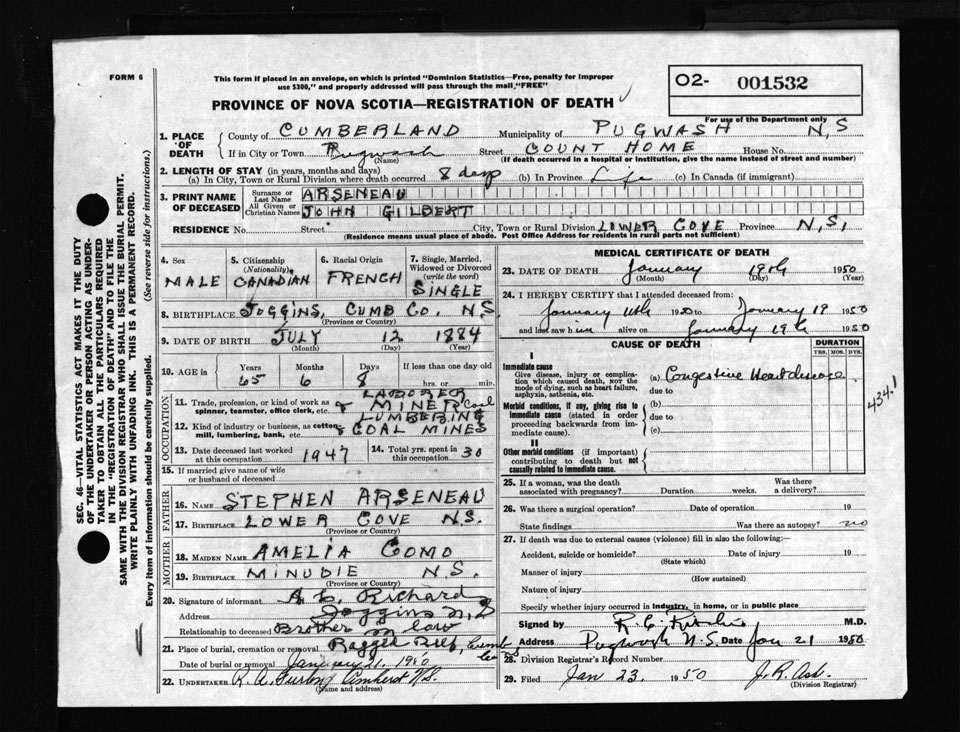 FORM 6
This form if placed in an envelope, on which is printed "Dominion Statistics—Free, penalty for improper
use $300," and properly addressed will pass through the mail, "FREE"
O2- 001532
For use of the Department only
PROVINCE OF NOVA SCOTIA—REGISTRATION OF DEATH
1. PLACE OF DEATH County of CUMBERLAND Municipality of PUGWASH N,S
If in City or Town Pugwash (Name) Street COUNT HOME House No.
(If death occurred in a hospital or institution, give the name instead of street and number)
2. LENGTH OF STAY (in years, months and days)
(a) In City, Town or Rural Division where death occurred 8 days (b) In Province Life (c) In Canada (if immigrant)
3. PRINT NAME OF DECEASED Surname or Last Name ARSENEAU
All Given or Christian Names JOHN GILBERT
RESIDENCE No. Street City, Town or Rural Division LOWER COVE Province N,S,
(Residence means usual place of abode. Post Office Address for residents in rural parts not sufficient)
4. Sex MALE
5. Citizenship (Nationality) CANADIAN
6. Racial Origin FRENCH
7. Single, Married, Widowed or Divorced (write the word) SINGLE
8. BIRTHPLACE JOGGINS, CUMB CO. N.S.
(Province or Country)
9. DATE OF BIRTH JULY (Month) 12 (Day) 1884 (Year)
10. AGE in Years 65 Months 6 Days 8 If less than one day old hrs. or min.
OCCUPATION
11. Trade, profession, or kind of work as spinner, teamster, office clerk, etc. LABORER & MINER Coal
12. Kind of industry or business, as cotton mill, lumbering, bank, etc. LUMBERING & COAL MINES
13. Date deceased last worked at this occupation 1947
14. Total yrs. spent in this occupation 30
15. If married give name of wife or husband of deceased
FATHER
16. NAME STEPHEN ARSENEAU
17. BIRTHPLACE LOWER COVE N.S.
(Province or Country)
MOTHER
18. MAIDEN NAME AMELIA COMO
19. BIRTHPLACE MINUDIE N.S.
(Province or Country)
20. Signature of informant Richard
Address Joggins N,S
Relationship to deceased Brother in law
21. Place of burial, cremation or removal Ragged Reef,
Date of burial or removal January 21, 19
22. UNDERTAKER R. A. Amherst N.S.
(Name and address)
MEDICAL CERTIFICATE OF DEATH
23. DATE OF DEATH January (Month) 19th (Day) 1950 (Year)
24. I HEREBY CERTIFY that I attended deceased from:
January 11th 1950 to January 19 1950
and last saw him alive on January 19th 1950
CAUSE OF DEATH
DURATION
YRS. MOS. DYS.
I
Immediate cause
Give disease, injury or complication which caused death, NOT the mode of dying, such as heart failure, asphyxia, asthenia, etc.
(a) Congestive Heart disease
due to
Morbid conditions, if any, giving rise to immediate cause (stated in order proceeding backwards from immediate cause).
(b)
due to
(c)
II
Other morbid conditions (if important) contributing to death but not causally related to immediate cause.
434.1
25. If a woman, was the death associated with pregnancy? Duration weeks. Was there a delivery?
26. Was there a surgical operation? Date of operation 19
State findings Was there an autopsy? no
27. If death was due to external causes (violence) fill in also the following:—
Accident, suicide or homicide? Date of injury 19
(State which)
Manner of injury
(How sustained)
Nature of injury
Specify whether injury occurred in industry, in home, or in public place
Signed by R. C. M.D.
Address Pugwash N.S. Date Jan 21 1950
28. Division Registrar's Record Number
29. Filed Jan 23, 1950
(Division Registrar)
SEC. 46—VITAL STATISTICS ACT MAKES IT THE DUTY
OF THE UNDERTAKER OR PERSON ACTING AS UNDER-
TAKER TO OBTAIN ALL THE PARTICULARS REQUIRED
IN THE "REGISTRATION OF DEATH" AND TO FILE THE
SAME WITH THE DIVISION REGISTRAR WHO SHALL ISSUE THE BURIAL PERMIT.
WRITE PLAINLY WITH UNFADING INK. THIS IS A PERMANENT RECORD.
Every item of information should be carefully supplied. (See reverse side for instructions.)